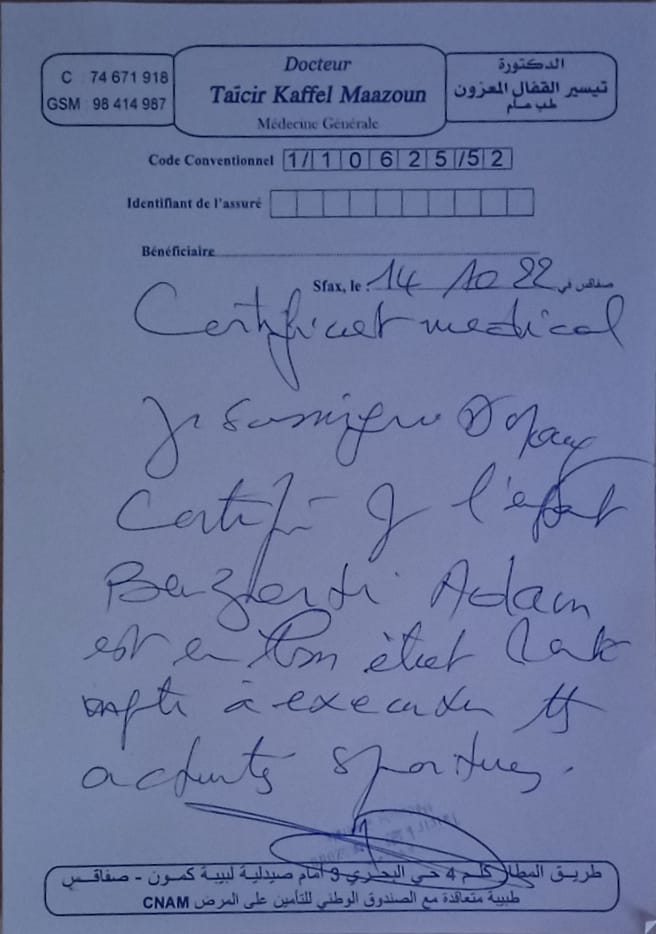 C 74 671 918
GSM 98 414 987
Docteur
Taïcir Kaffel Maazoun
Médecine Générale
الدكتورة
تيسير القفال المعزون
طب عام
Code Conventionnel 1/10625/52
Identifiant de l'assuré
Bénéficiaire
Sfax, le : 14 10 22 صفاقس في
Certificat medical
Je soussigne Dr
Certifie q l'enfant
Adam
est en bon état
apte à executer ts
activités sportives.
طريق المطار كلم 4 حي البحري 3 أمام صيدلية لبيبة كمون - صفاقس
طبيبة متعاقدة مع الصندوق الوطني للتأمين على المرض CNAM